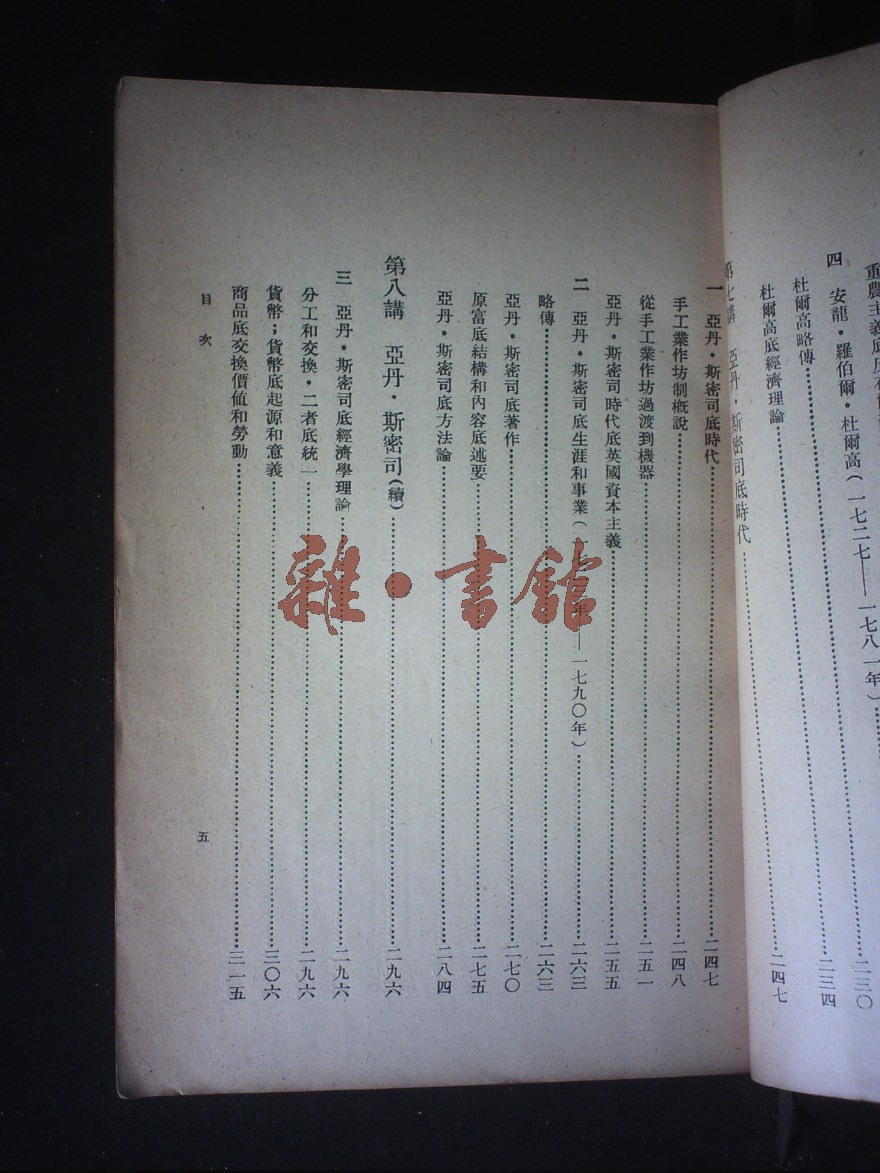 四　安龍・羅伯爾・杜爾高(一七二七——一七八一年)……二三〇
杜爾高略傳……二三四
杜爾高底經濟理論……
第七講　亞丹・斯密司底時代……二四七
一　亞丹・斯密司底時代……二四七
手工業作坊制概說……二四八
從手工業作坊過渡到機器……二五一
亞丹・斯密司時代底英國資本主義……二五五
二　亞丹・斯密司底生涯和事業(一七二三年——一七九〇年)……二六三
略傳……二六三
亞丹・斯密司底著作……二七〇
原富底結構和內容底述要……二七五
亞丹・斯密司底方法論……二八四
第八講　亞丹・斯密司(續)……二九六
三　亞丹・斯密司底經濟學理論……二九六
分工和交換・二者底統一……二九六
貨幣；貨幣底起源和意義……三〇六
商品底交換價值和勞動……三一五
目次
五
雜・書館